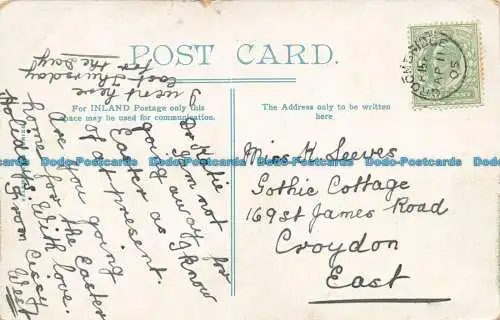 POST CARD.
For INLAND Postage only this
space may be used for communication.
The Address only to be written
here
I went here
last Thursday
for the day
Dr Katie
I'm not for
going away for
Easter as I know
of at present.
Are you going
home for the Easter
Holidays. With love.
from Cissy
West
Miss K. Seeves
Gothic Cottage
169 St James Road
Croydon
East
AP 11
05
Dodo-Postcards Dodo-Postcards Dodo-Postcards Dodo-Postcards Dodo-Postcards